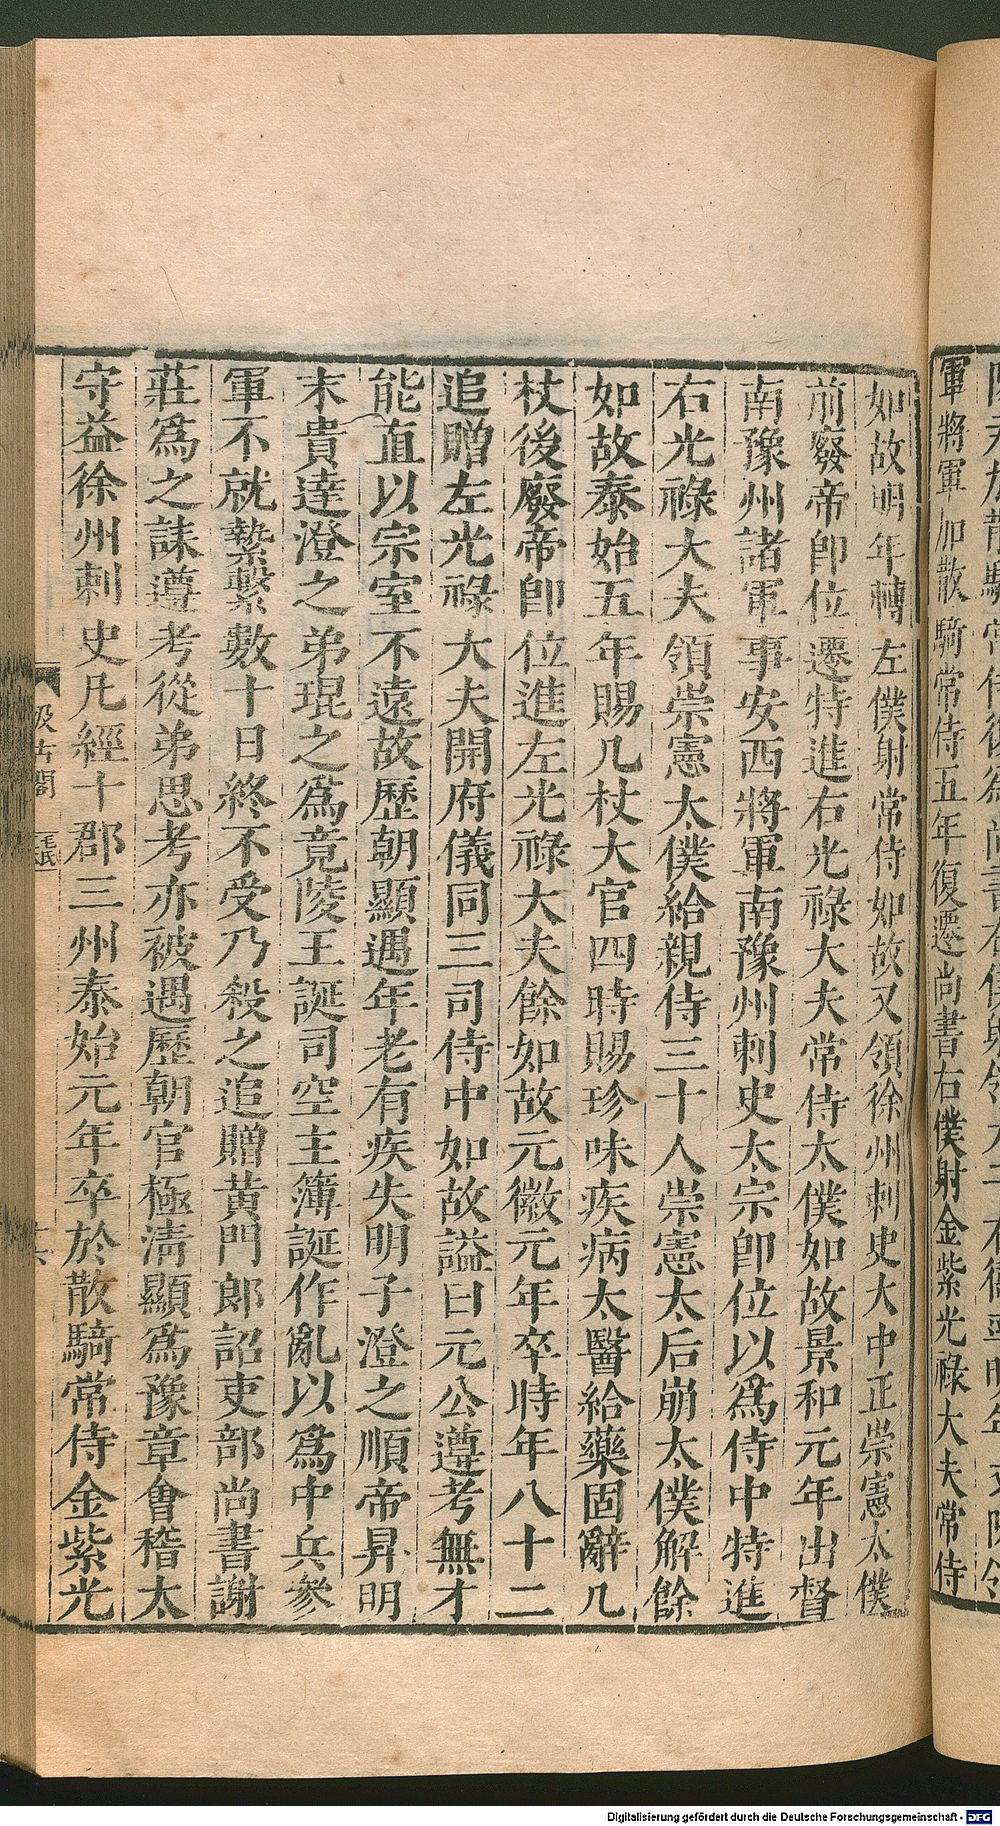 軍將軍加散騎常侍五年復遷尚書右僕射金紫光祿大夫常侍
如故明年轉左僕射常侍如故又領徐州刺史大中正崇憲太僕
前廢帝卽位遷特進右光祿大夫常侍太僕如故景和元年出督
南豫州諸軍事安西將軍南豫州刺史太宗卽位以爲侍中特進
右光祿大夫領崇憲太僕給親侍三十人崇憲太后崩太僕解餘
如故泰始五年賜几杖大官四時賜珍味疾病太醫給藥固辭几
杖後廢帝卽位進左光祿大夫餘如故元徽元年卒時年八十二
追贈左光祿大夫開府儀同三司侍中如故謚曰元公遵考無才
能直以宗室不遠故歷朝顯遇年老有疾失明子澄之順帝昇明
末貴達澄之弟琨之爲竟陵王誕司空主簿誕作亂以爲中兵參
軍不就縶繫數十日終不受乃殺之追贈黃門郎詔吏部尚書謝
莊爲之誄遵考從弟思考亦被遇歷朝官極淸顯爲豫章會稽太
守益徐州刺史凡經十郡三州泰始元年卒於散騎常侍金紫光
汲古閣
Digitalisierung gefördert durch die Deutsche Forschungsgemeinschaft - DFG